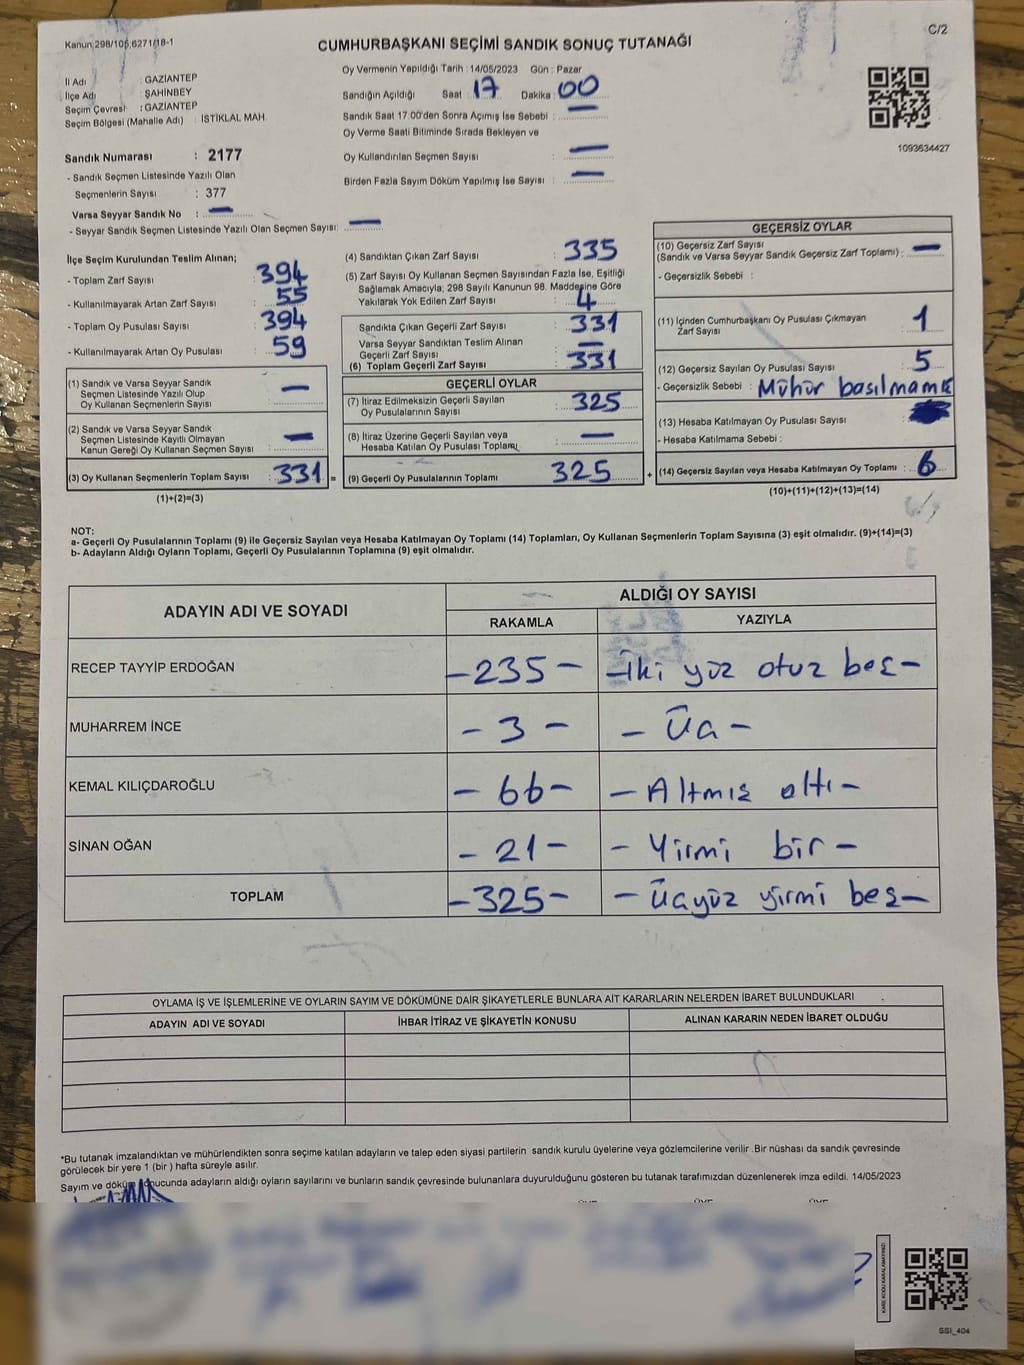 Kanun 298/106,6271/18-1
C/2
CUMHURBAŞKANI SEÇİMİ SANDIK SONUÇ TUTANAĞI
Oy Vermenin Yapıldığı Tarih : 14/05/2023 Gün : Pazar
İl Adı : GAZİANTEP
İlçe Adı : ŞAHİNBEY
Seçim Çevresi : GAZİANTEP
Seçim Bölgesi (Mahalle Adı) : İSTİKLAL MAH.
Sandığın Açıldığı Saat 17 Dakika 00
Sandık Saat 17:00'den Sonra Açımış İse Sebebi : —
Oy Verme Saati Bitiminde Sırada Bekleyen ve
Oy Kullandırılan Seçmen Sayısı : —
Birden Fazla Sayım Döküm Yapılmış İse Sayısı : —
1093634427
Sandık Numarası : 2177
- Sandık Seçmen Listesinde Yazılı Olan
Seçmenlerin Sayısı : 377
Varsa Seyyar Sandık No : —
- Seyyar Sandık Seçmen Listesinde Yazılı Olan Seçmen Sayısı: —
İlçe Seçim Kurulundan Teslim Alınan;
- Toplam Zarf Sayısı : 394
- Kullanılmayarak Artan Zarf Sayısı : 55
- Toplam Oy Pusulası Sayısı : 394
- Kullanılmayarak Artan Oy Pusulası : 59
(1) Sandık ve Varsa Seyyar Sandık
Seçmen Listesinde Yazılı Olup
Oy Kullanan Seçmenlerin Sayısı : —
(2) Sandık ve Varsa Seyyar Sandık
Seçmen Listesinde Kayıtlı Olmayan
Kanun Gereği Oy Kullanan Seçmen Sayısı : —
(3) Oy Kullanan Seçmenlerin Toplam Sayısı : 331 =
(1)+(2)=(3)
(4) Sandıktan Çıkan Zarf Sayısı : 335
(5) Zarf Sayısı Oy Kullanan Seçmen Sayısından Fazla İse, Eşitliği
Sağlamak Amacıyla; 298 Sayılı Kanunun 98. Maddesine Göre
Yakılarak Yok Edilen Zarf Sayısı : 4
Sandıkta Çıkan Geçerli Zarf Sayısı : 331
Varsa Seyyar Sandıktan Teslim Alınan
Geçerli Zarf Sayısı : —
(6) Toplam Geçerli Zarf Sayısı : 331
GEÇERLİ OYLAR
(7) İtiraz Edilmeksizin Geçerli Sayılan
Oy Pusulalarının Sayısı : 325
(8) İtiraz Üzerine Geçerli Sayılan veya
Hesaba Katılan Oy Pusulası Toplamı : —
(9) Geçerli Oy Pusulalarının Toplamı : 325 +
GEÇERSİZ OYLAR
(10) Geçersiz Zarf Sayısı
(Sandık ve Varsa Seyyar Sandık Geçersiz Zarf Toplamı) : —
- Geçersizlik Sebebi :
(11) İçinden Cumhurbaşkanı Oy Pusulası Çıkmayan
Zarf Sayısı : 1
(12) Geçersiz Sayılan Oy Pusulası Sayısı : 5
- Geçersizlik Sebebi : Mühür basılmamış
(13) Hesaba Katılmayan Oy Pusulası Sayısı :
- Hesaba Katılmama Sebebi :
(14) Geçersiz Sayılan veya Hesaba Katılmayan Oy Toplamı : 6
(10)+(11)+(12)+(13)=(14)
NOT:
a- Geçerli Oy Pusulalarının Toplamı (9) ile Geçersiz Sayılan veya Hesaba Katılmayan Oy Toplamı (14) Toplamları, Oy Kullanan Seçmenlerin Toplam Sayısına (3) eşit olmalıdır. (9)+(14)=(3)
b- Adayların Aldığı Oyların Toplamı, Geçerli Oy Pusulalarının Toplamına (9) eşit olmalıdır.
ADAYIN ADI VE SOYADI ALDIĞI OY SAYISI
RAKAMLA YAZIYLA
RECEP TAYYİP ERDOĞAN - 235 - - İki yüz otuz beş -
MUHARREM İNCE - 3 - - Üç -
KEMAL KILIÇDAROĞLU - 66 - - Altmış altı -
SİNAN OĞAN - 21 - - Yirmi bir -
TOPLAM - 325 - - Üçyüz yirmi beş -
OYLAMA İŞ VE İŞLEMLERİNE VE OYLARIN SAYIM VE DÖKÜMÜNE DAİR ŞİKAYETLERLE BUNLARA AİT KARARLARIN NELERDEN İBARET BULUNDUKLARI
ADAYIN ADI VE SOYADI İHBAR İTİRAZ VE ŞİKAYETİN KONUSU ALINAN KARARIN NEDEN İBARET OLDUĞU
*Bu tutanak imzalandıktan ve mühürlendikten sonra seçime katılan adayların ve talep eden siyasi partilerin sandık kurulu üyelerine veya gözlemcilerine verilir. Bir nüshası da sandık çevresinde
görülecek bir yere 1 (bir ) hafta süreyle asılır.
Sayım ve döküm sonucunda adayların aldığı oyların sayılarını ve bunların sandık çevresinde bulunanlara duyurulduğunu gösteren bu tutanak tarafımızdan düzenlenerek imza edildi. 14/05/2023
KARE KODU KARALAMAYINIZ!
SSI_404